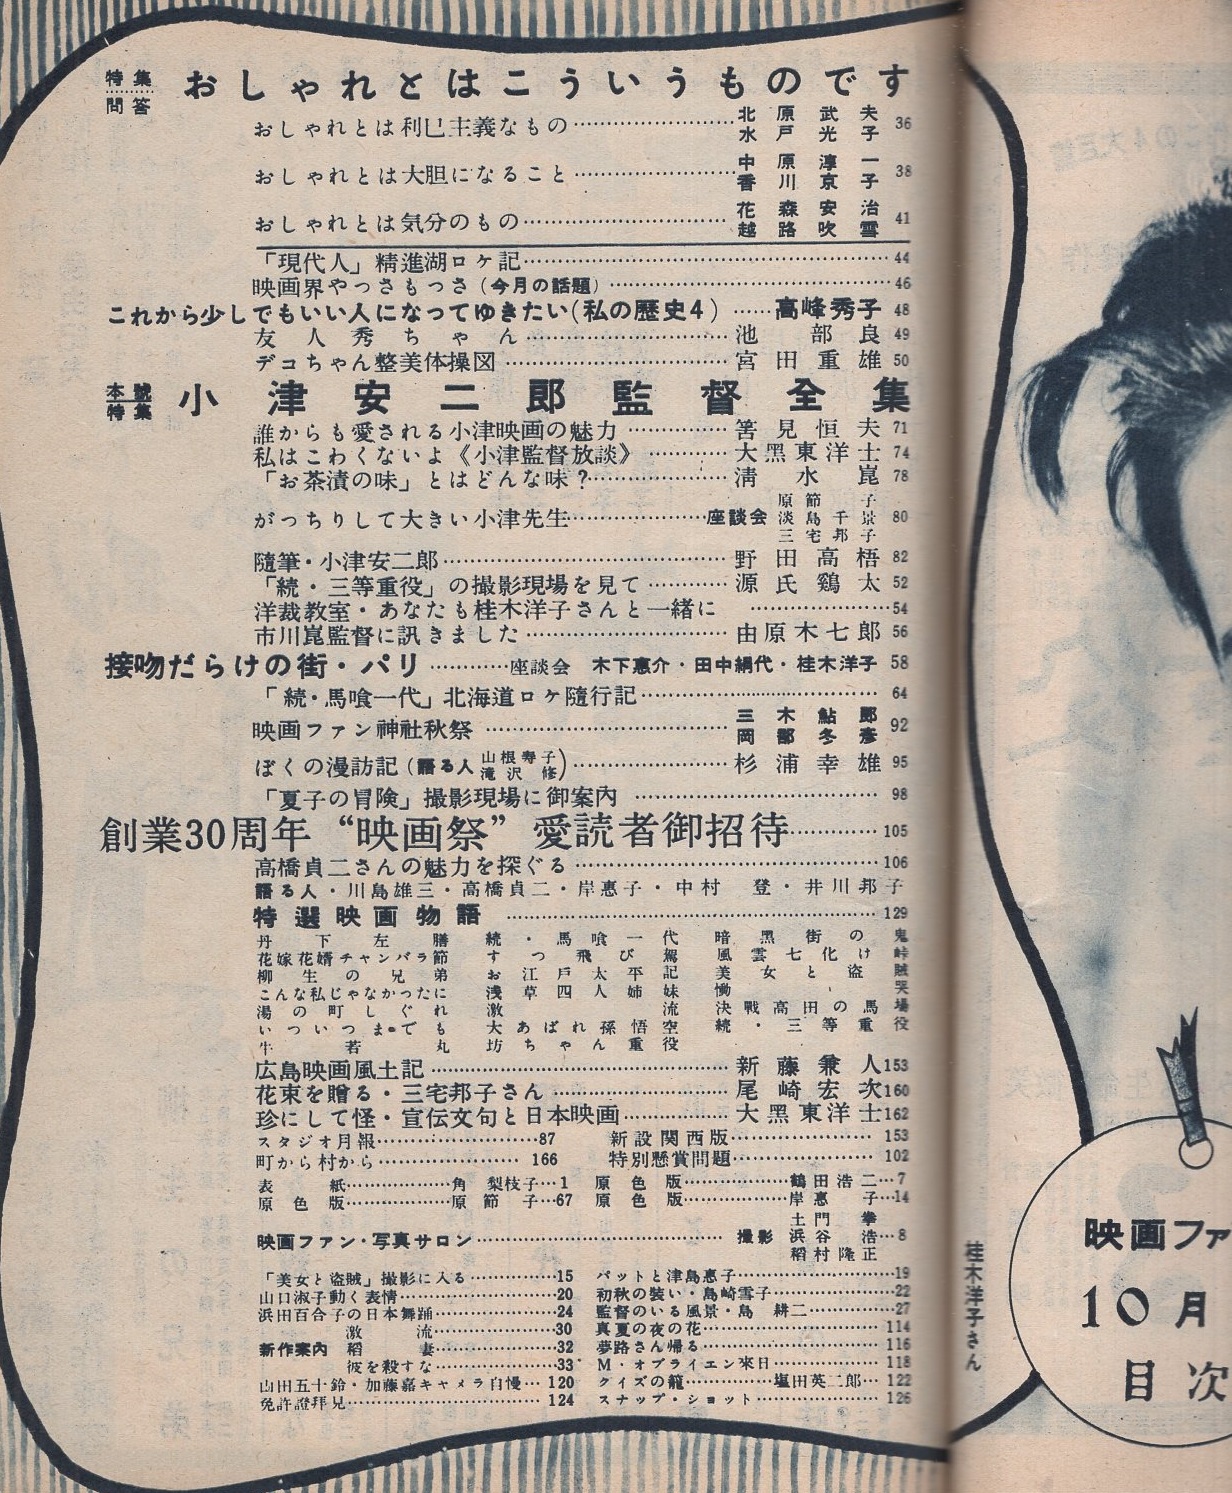 特集問答 おしゃれとはこういうものです
おしゃれとは利己主義なもの 北原武夫 水戸光子 36
おしゃれとは大胆になること 中原淳一 香川京子 38
おしゃれとは気分のもの 花森安治 越路吹雪 41
「現代人」精進湖ロケ記 44
映画界やっさもっさ(今月の話題) 46
これから少しでもいい人になってゆきたい(私の歴史4) 高峰秀子 48
友人秀ちゃん 池部良 49
デコちゃん整美体操図 宮田重雄 50
本號特集 小津安二郎監督全集
誰からも愛される小津映画の魅力 筈見恒夫 71
私はこわくないよ《小津監督放談》 大黑東洋士 74
「お茶漬の味」とはどんな味? 清水崑 78
がっちりして大きい小津先生 座談会 原節子 淡島千景 三宅邦子 80
隨筆・小津安二郎 野田高梧 82
「続・三等重役」の撮影現場を見て 源氏鶏太 52
洋裁教室・あなたも桂木洋子さんと一緒に 54
市川崑監督に訊きました 由原木七郎 56
接吻だらけの街・パリ 座談会 木下惠介・田中絹代・桂木洋子 58
「続・馬喰一代」北海道ロケ隨行記 64
映画ファン神社秋祭 三木鮎郎 岡部冬彦 92
ぼくの漫訪記(語る人 山根寿子 滝沢修) 杉浦幸雄 95
「夏子の冒険」撮影現場に御案内 98
創業30周年“映画祭”愛読者御招待 105
高橋貞二さんの魅力を探ぐる 106
語る人・川島雄三・高橋貞二・岸惠子・中村登・井川邦子
特選映画物語 129
丹下左膳 続・馬喰一代 暗黑街の鬼
花嫁花婿チャンバラ節 すっ飛び駕 風雲七化け峠
柳生の兄弟 お江戸太平記 美女と盗賊
こんな私じゃなかったに 浅草四人姉妹 慟哭
湯の町しぐれ 激流 決戦高田の馬場
いついつまでも 大あばれ孫悟空 続・三等重役
牛若丸 坊ちゃん重役
広島映画風土記 新藤兼人 153
花束を贈る・三宅邦子さん 尾崎宏次 160
珍にして怪・宣伝文句と日本映画 大黑東洋士 162
スタジオ月報 87 新設関西版 153
町から村から 166 特別懸賞問題 102
表紙 角梨枝子 1 原色版 鶴田浩二 7
原色版 原節子 67 原色版 岸惠子 14
映画ファン・写真サロン 撮影 土門拳 浜谷浩 稻村隆正 8
「美女と盗賊」撮影に入る 15 パットと津島惠子 19
山口淑子動く表情 20 初秋の装い・島崎雪子 22
浜田百合子の日本舞踊 24 監督のいる風景・島耕二 27
新作案内 激流 30 真夏の夜の花 114
稻妻 32 夢路さん帰る 116
彼を殺すな 33 M・オブライエン來日 118
山田五十鈴・加藤嘉キャメラ自慢 120 クイズの籠 塩田英二郎 122
免許證拝見 124 スナップ・ショット 126
桂木洋子さん
映画ファ
10月
目次